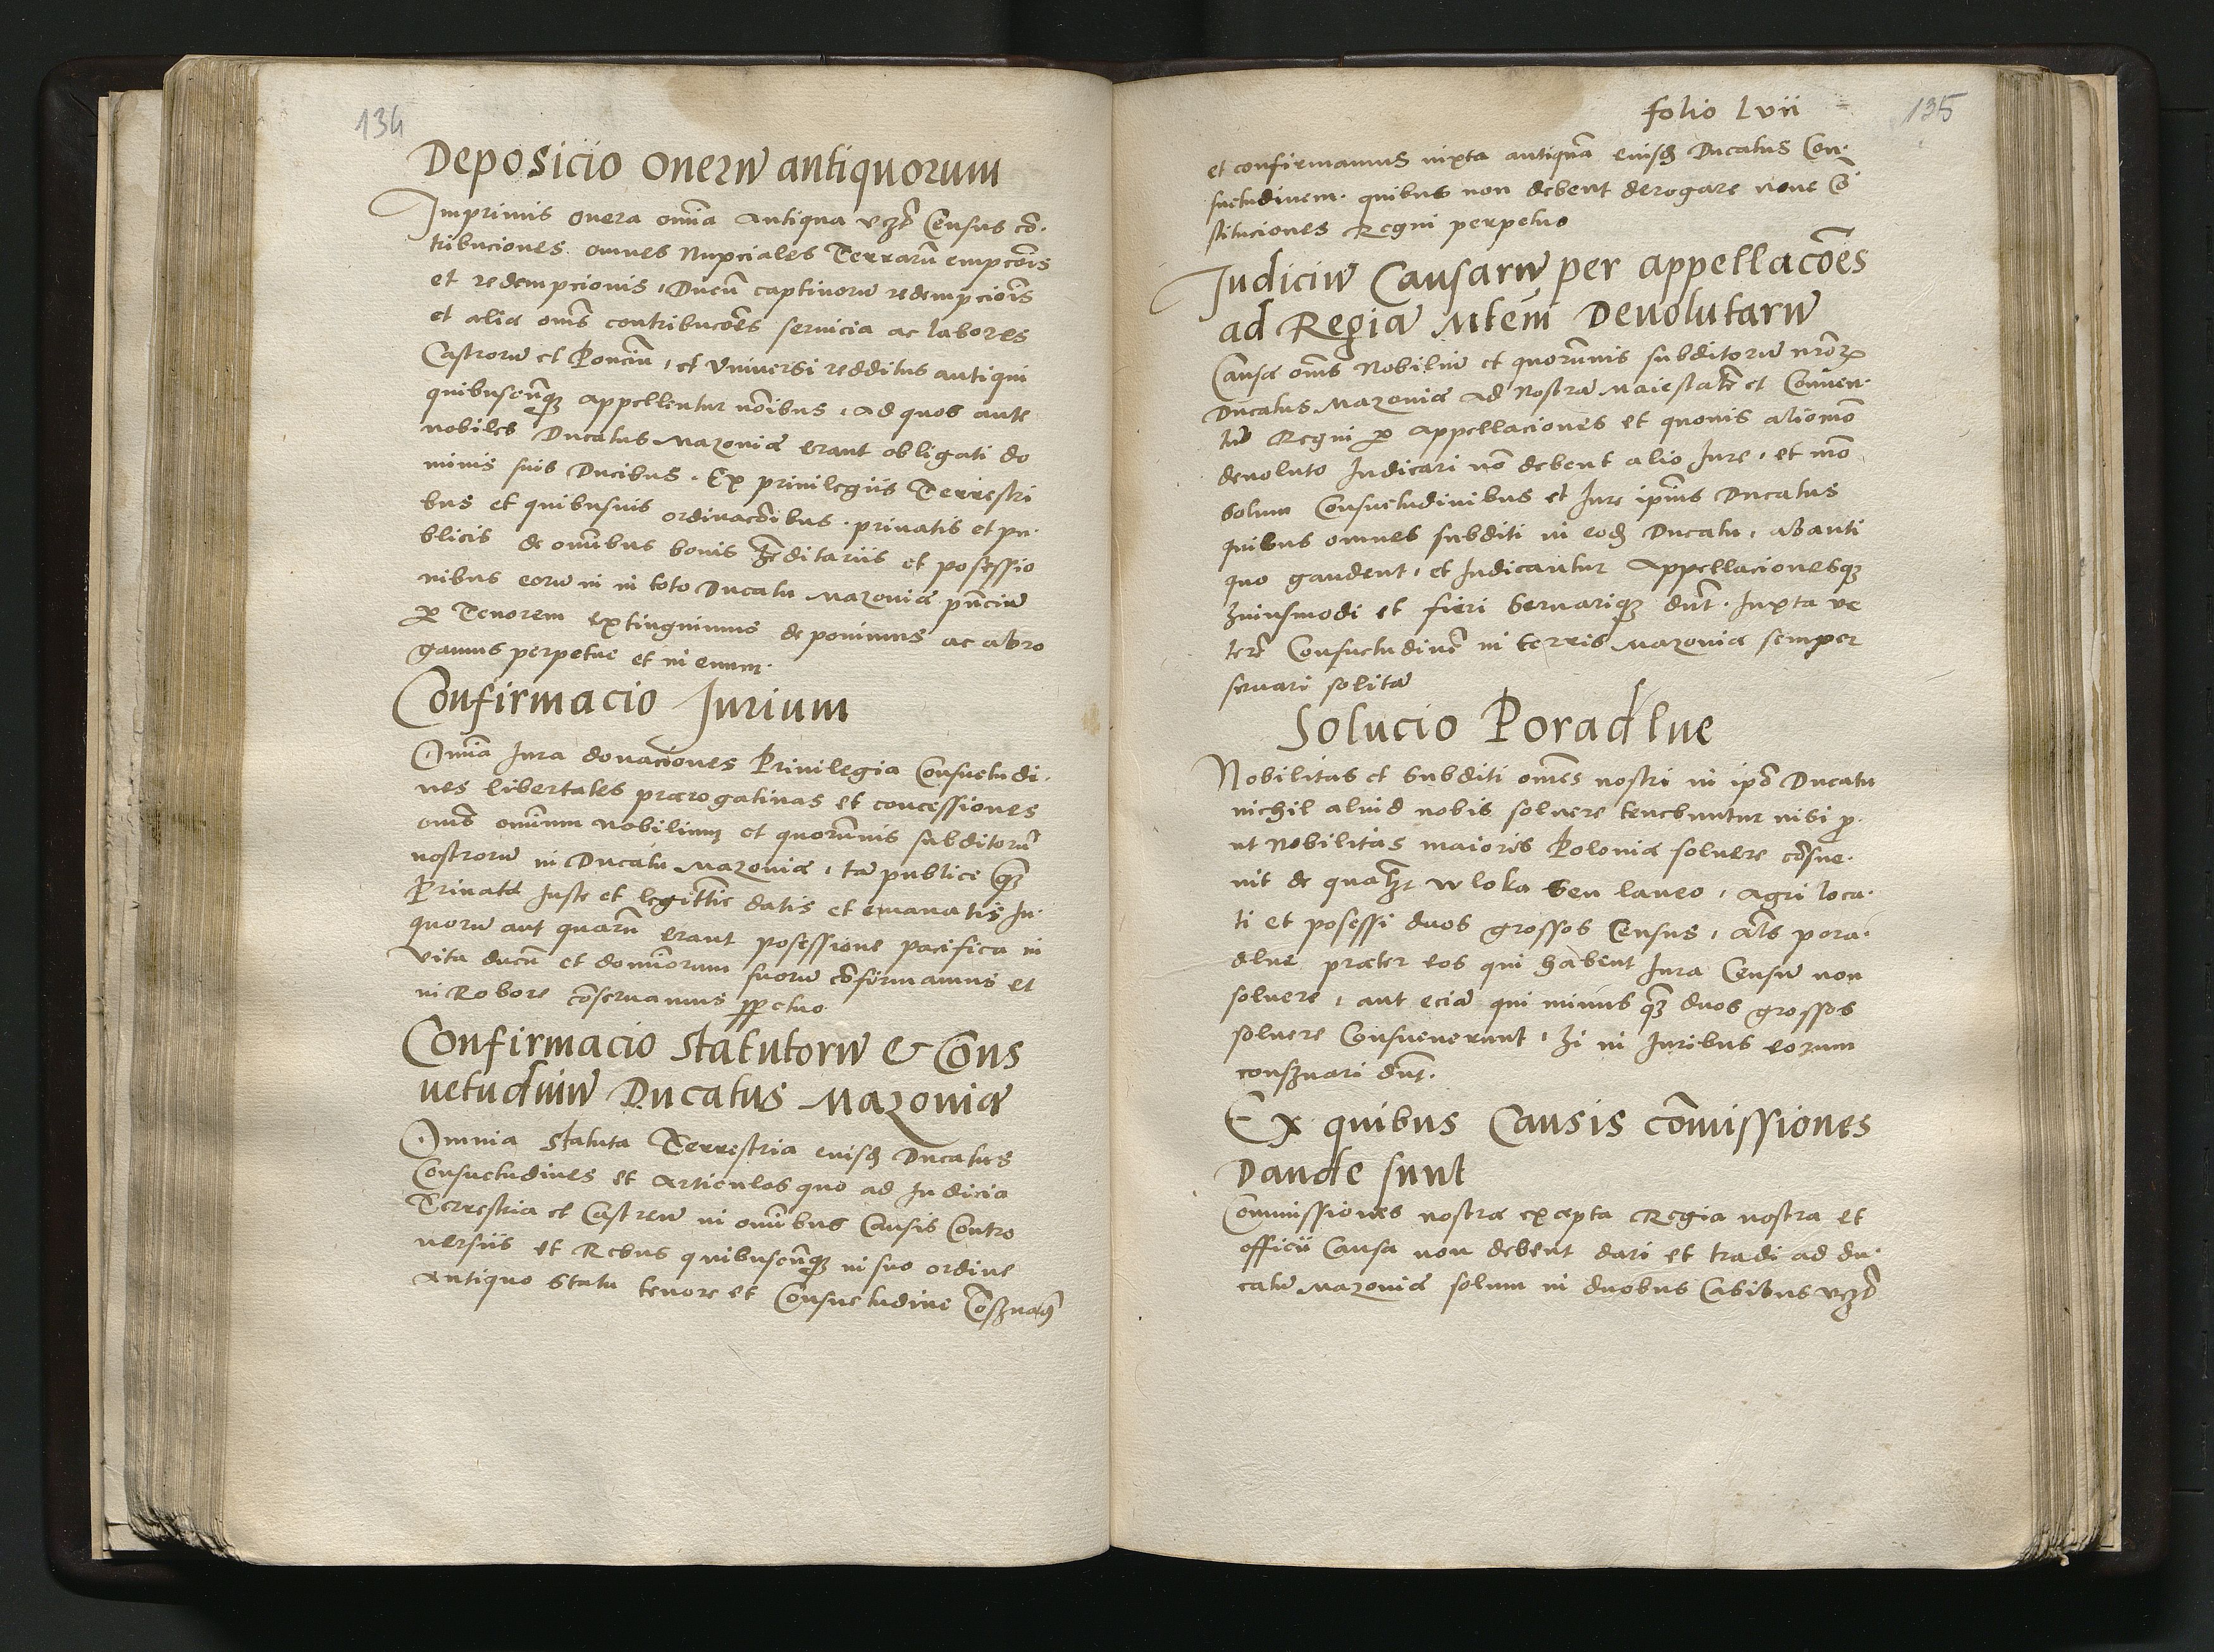 134
Deposicio onerũ antiquorum
Imprimis onera om̃ia antiqua vcz̃ Census cõ.
tribuciones omnes Nupciales Terrarũ empcõis
et redempcionis, Ducũ captivorũ redempciõis
et aliæ om̃s contribucões servicia ac labores
Castrorũ et Ponciũ, et Vniversi redditus antiqui
quibuscũqȝ appellentur nõibus, ad quos ante
nobiles Ducatus Mazoviæ erant obligati do
minis suis Ducibus. Ex privilegiis Terrestri
bus et quibusvis ordinacõibus. privatis et pu.
blicis de om̃ibus bonis hæreditariis et posessio
nibus eorũ in in toto Ducatu Mazoviæ pñciũ
ꝑ Tenorem extinguimus deponimus ac abro
gamus perpetue et in evum.
Confirmacio Jurium
Om̃ia Jura donaciones Privilegia Consuetudi.
nes libertates prærogativas et concessiones
om̃s om̃ium nobilium et quorũvis subditorũ
nostrorũ in Ducatu Mazoviæ, tã publice qȝ̃
Private Juste et legittĩe datis et emanatis, In
quorũ aut quarũ erant posessione pacifica in
vita ducũ et dominorum suorũ cõfirmamus et
in Robore cõservamus ꝑpetuo
Confirmacio statutorũ & Cons
uetudinũ Ducatus Mazoviæ
Omnia statuta Terrestria eiusdȝ Ducatus
Consuetudines et Articulos quo ad Judicia
Terrestria et Castreñ in om̃ibus Causis Contro
versiis et Rebus quibuscũqȝ in suo ordine
Antiquo Statu tenore et Consuetudine Cõservam⁹
folio Lvii
135
et confirmamus iuxta antiquã eiusdȝ Ducatus Con.
suetudinem. quibus non debent derogare nove Cõ
stituciones Regni perpetuo
Judiciũ Causarũ per appellacões
ad Regiã Mtem̃ Devolutarũ
Causæ om̃s Nobiliũ et quorũvis subditorũ nr̃orꝝ
Ducatus Mazoviæ ad Nostrã Maiestatẽ et Conven.
tũ Regni ꝑ Appellaciones et quovis aliomõ
devoluto Judicari nõ debent alio Jure, et mõ
solum Consuetudinibus et Jure ipĩus Ducatus
quibus omnes subditi in eodȝ Ducatu, ab anti
quo gaudent, et Judicantur Appellacionesqȝ
huiusmodi et fieri servariqȝ dñt. Iuxta ve
terẽ Consuetudinẽ in terris Mazoviæ semper
servari solitã
Solucio Poradlne
Nobilitas et subditi om̃es nostri in ipõ Ducatu
nichil aliud nobis solvere tenebuntur nisi ꝓ.
ut Nobilitas maioris Poloniæ solvere cõsue.
vit de qualȝt wloka seu laneo, agri loca.
ti et posessi duos grossos Census, al̃s pora.
dlne præter eos qui habent Jura Censũ non
solvere, aut eciã qui minus qȝ̃ duos grossos
solvere Consueverunt, hi in Juribus eorum
conservari dñt.
Ex quibus Causis cõmissiones
Dande sunt
Commissiones nostræ excepta Regia nostra et
officii Causa non debent dari et tradi ad du.
catũ Mazoviæ solum in duobus Casibus vcz̃